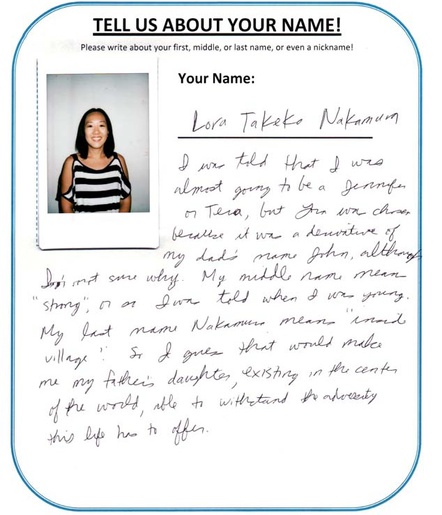 TELL US ABOUT YOUR NAME!
Please write about your first, middle, or last name, or even a nickname!
Your Name:
Lora Takeko Nakamura
I was told that I was
almost going to be a Jennifer
or Tera, but Lora was chosen
because it was a derivative of
my dad's name John, although
I'm not sure why. My middle name means
"strong", or so I was told when I was young.
My last name Nakamura means "inside
village". So I guess that would make
me my father's daughter, existing in the center
of the world, able to withstand the adversity
this life has to offer.